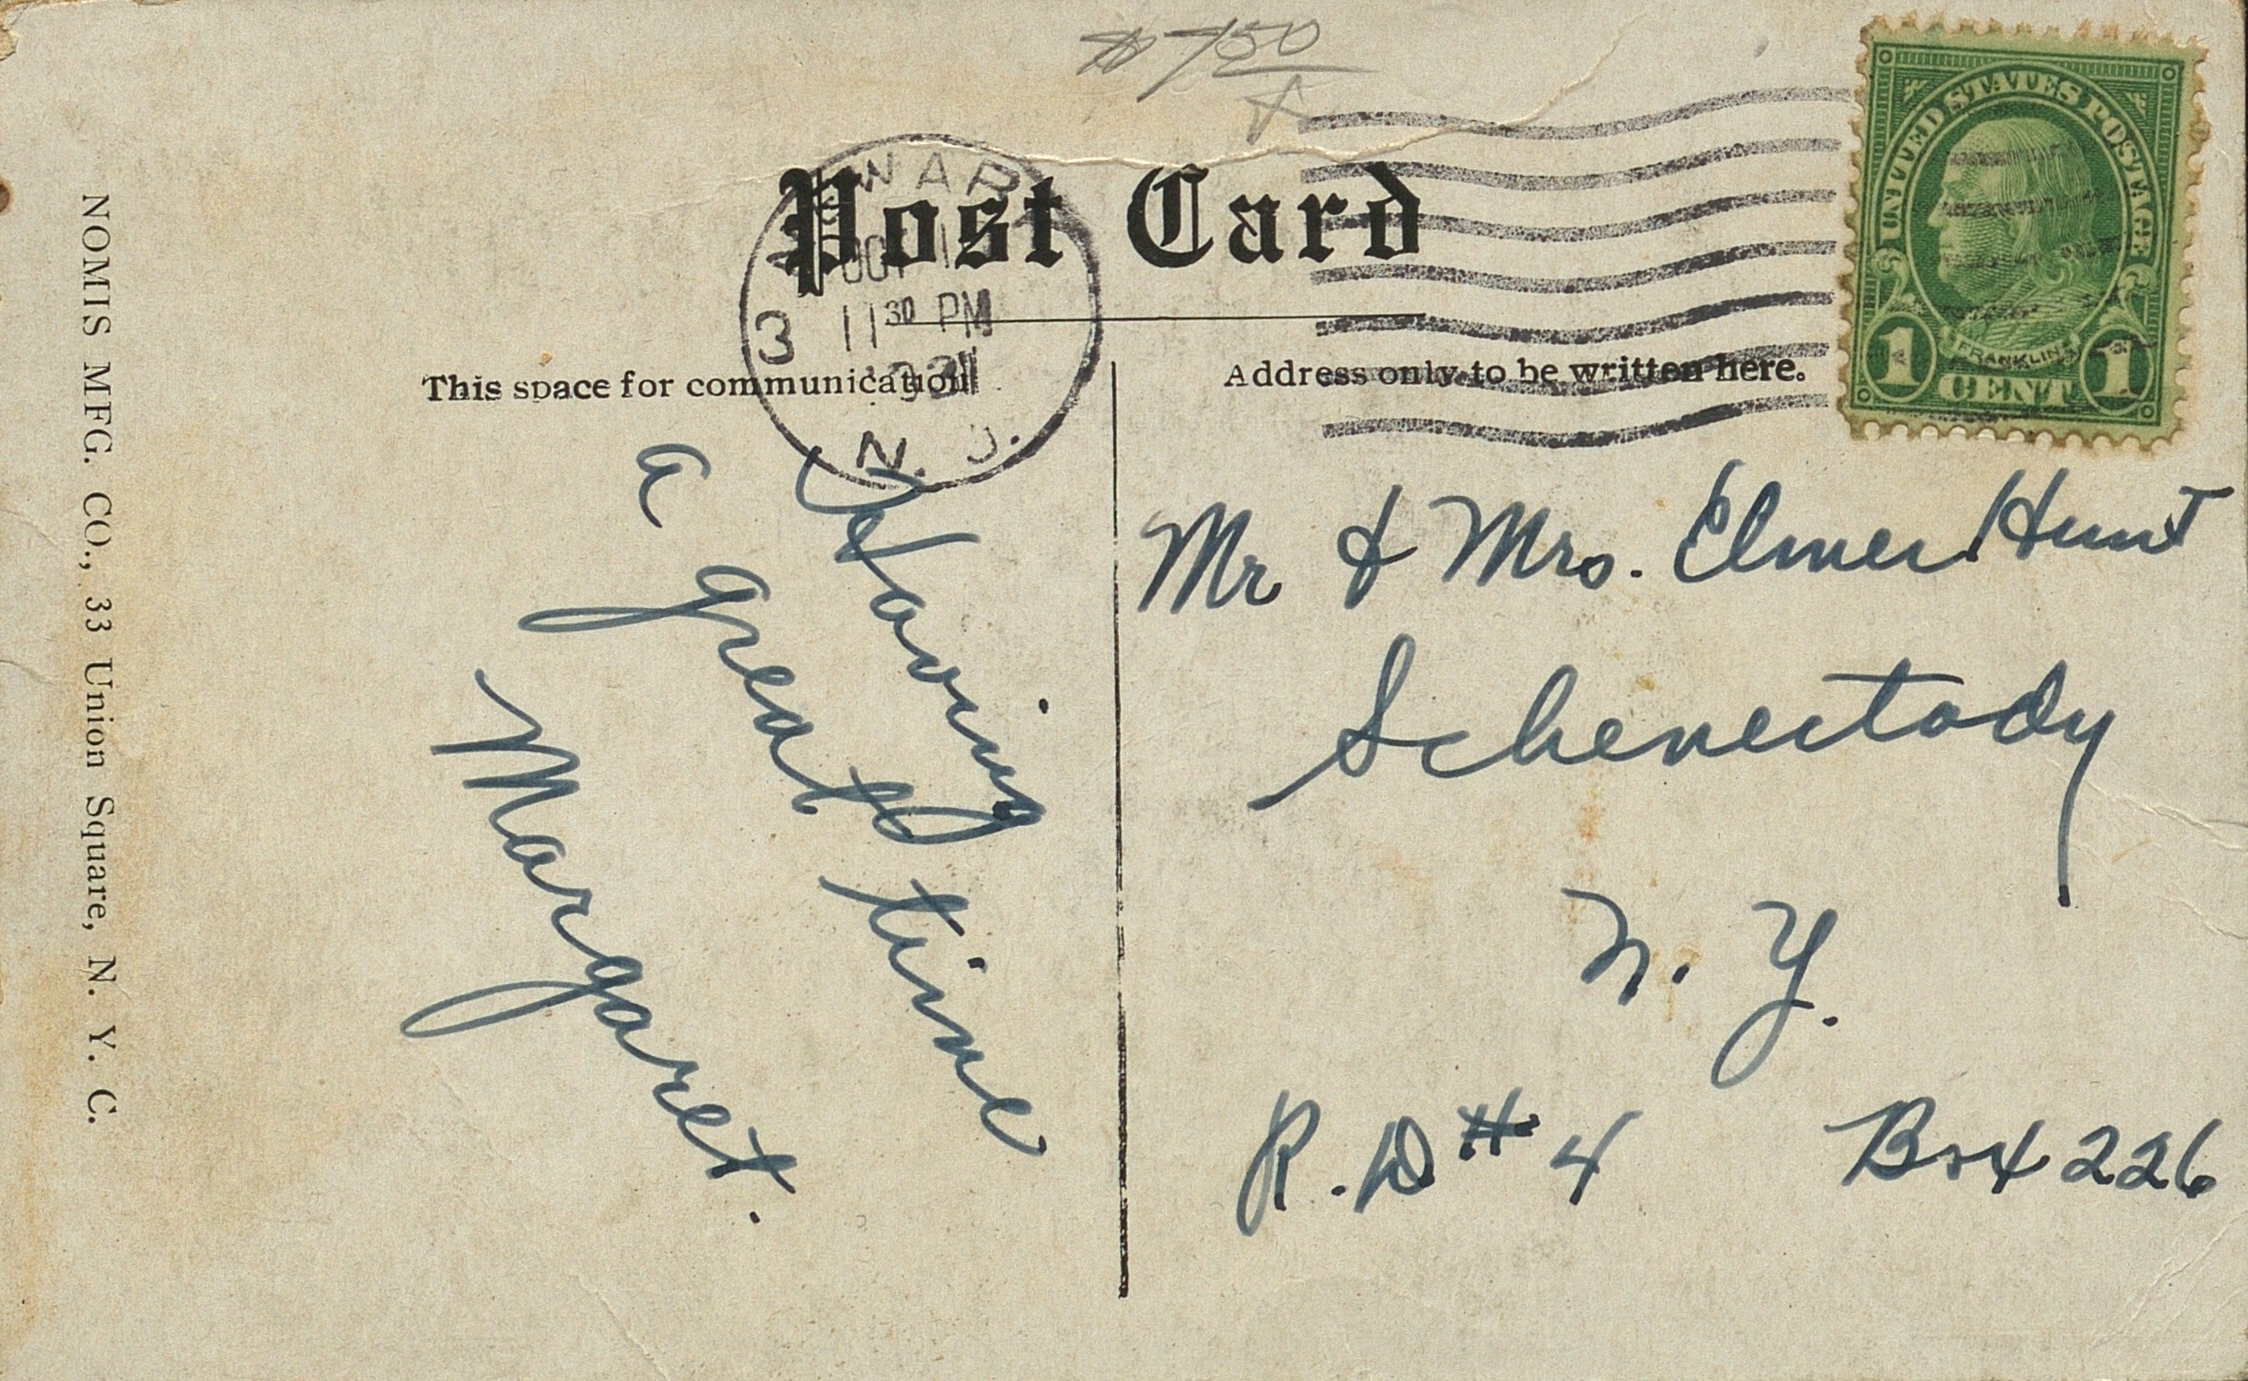 $7.50
Post Card
OCT 1
11 30 PM
3
N. J.
This space for communication
Address only to be written here.
UNITED STATES POSTAGE
FRANKLIN
1 CENT 1
NOMIS MFG. CO., 33 Union Square, N. Y. C.
Having
a great time
Margaret.
Mr & Mrs. Elmer Hunt
Schenectady
N. Y.
R. D # 4 Box 226